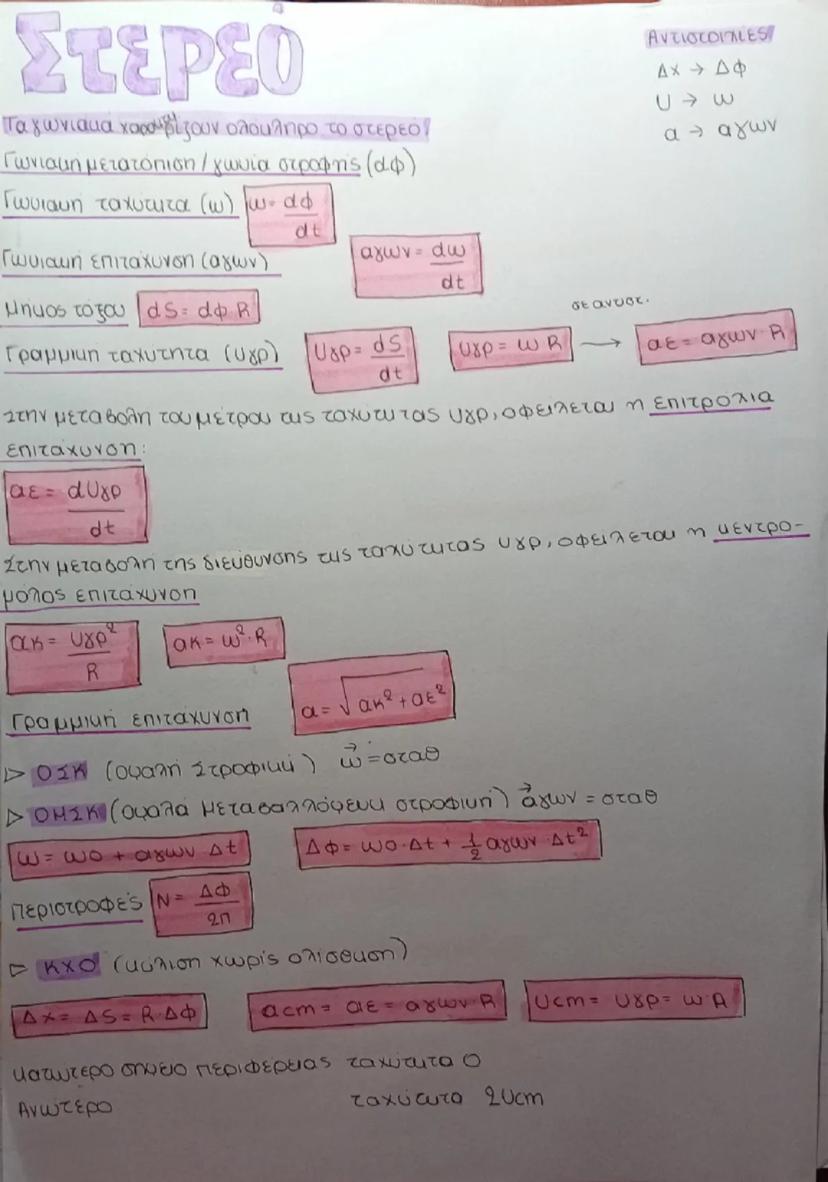 Στερεό
Αντιστοιχίες
Δx → Δφ
υ → ω
α → αγων
Τα γωνιακά χαρακτηρίζουν ολόκληρο το στερεό!
Γωνιακή μετατόπιση / γωνία στροφής (dφ)
Γωνιακή ταχύτητα (ω) ω = dφ/dt
Γωνιακή επιτάχυνση (αγων) αγων = dω/dt
Μήκος τόξου dS = dφ R
σε αντιστ.
Γραμμική ταχύτητα (υγρ) υγρ = dS/dt υγρ = ω R → αε = αγων · R
Στην μεταβολή του μέτρου της ταχύτητας υγρ, οφείλεται η επιτρόχια
επιτάχυνση:
αε = dυγρ/dt
Στην μεταβολή της διεύθυνσης της ταχύτητας υγρ, οφείλεται η κεντρο-
μόλος επιτάχυνση
ακ = υγρ²/R ακ = ω² · R
Γραμμική επιτάχυνση α = √ακ² + αε²
▷ ΟΣΚ (ομαλή Στροφική) ω⃗ = σταθ
▷ ΟΜΣΚ (ομαλά μεταβαλλόμενη στροφική) α⃗γων = σταθ
ω = ω0 + αγων Δt Δφ = ω0 · Δt + 1/2 αγων · Δt²
Περιστροφές N = Δφ/2π
▷ ΚΧΟ (κύλιση χωρίς ολίσθηση)
Δx = ΔS = R · Δφ αcm = αε = αγων · R υcm = υγρ = ω · R
κατώτερο σημείο περιφέρειας ταχύτητα 0
Ανώτερο ταχύτητα 2υcm